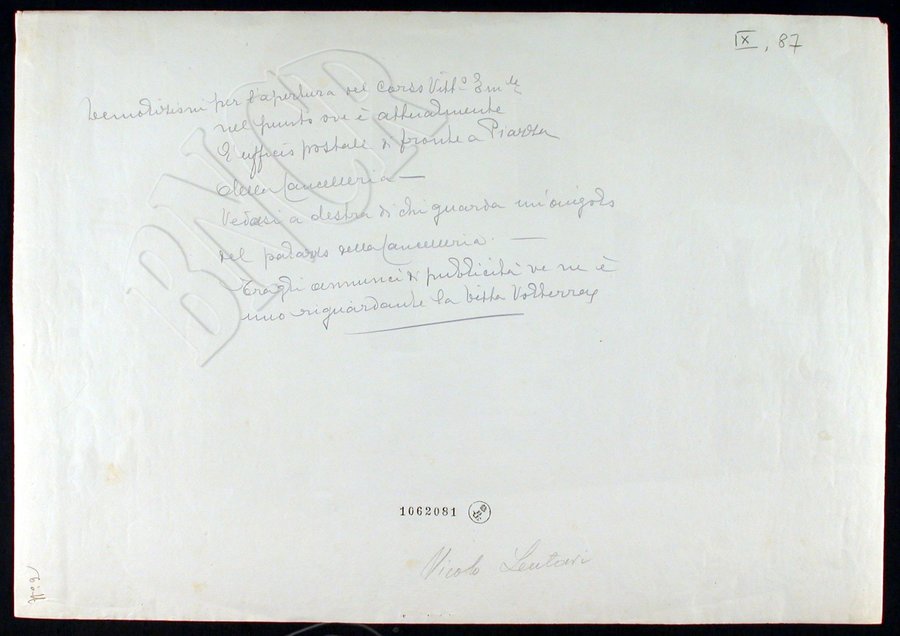 IX, 87
Demolizioni per l'apertura del Corso Vitt.o Em.le
nel punto ove è attualmente
l'ufficio postale di fronte a Piazza
della Cancelleria —
Vedasi a destra di chi guarda un'angolo
del palazzo della Cancelleria. —
Tra gli annunci di pubblicità ve ne è
uno riguardante la Ditta Volterra
BNCR
1062081
Vicolo Leutari